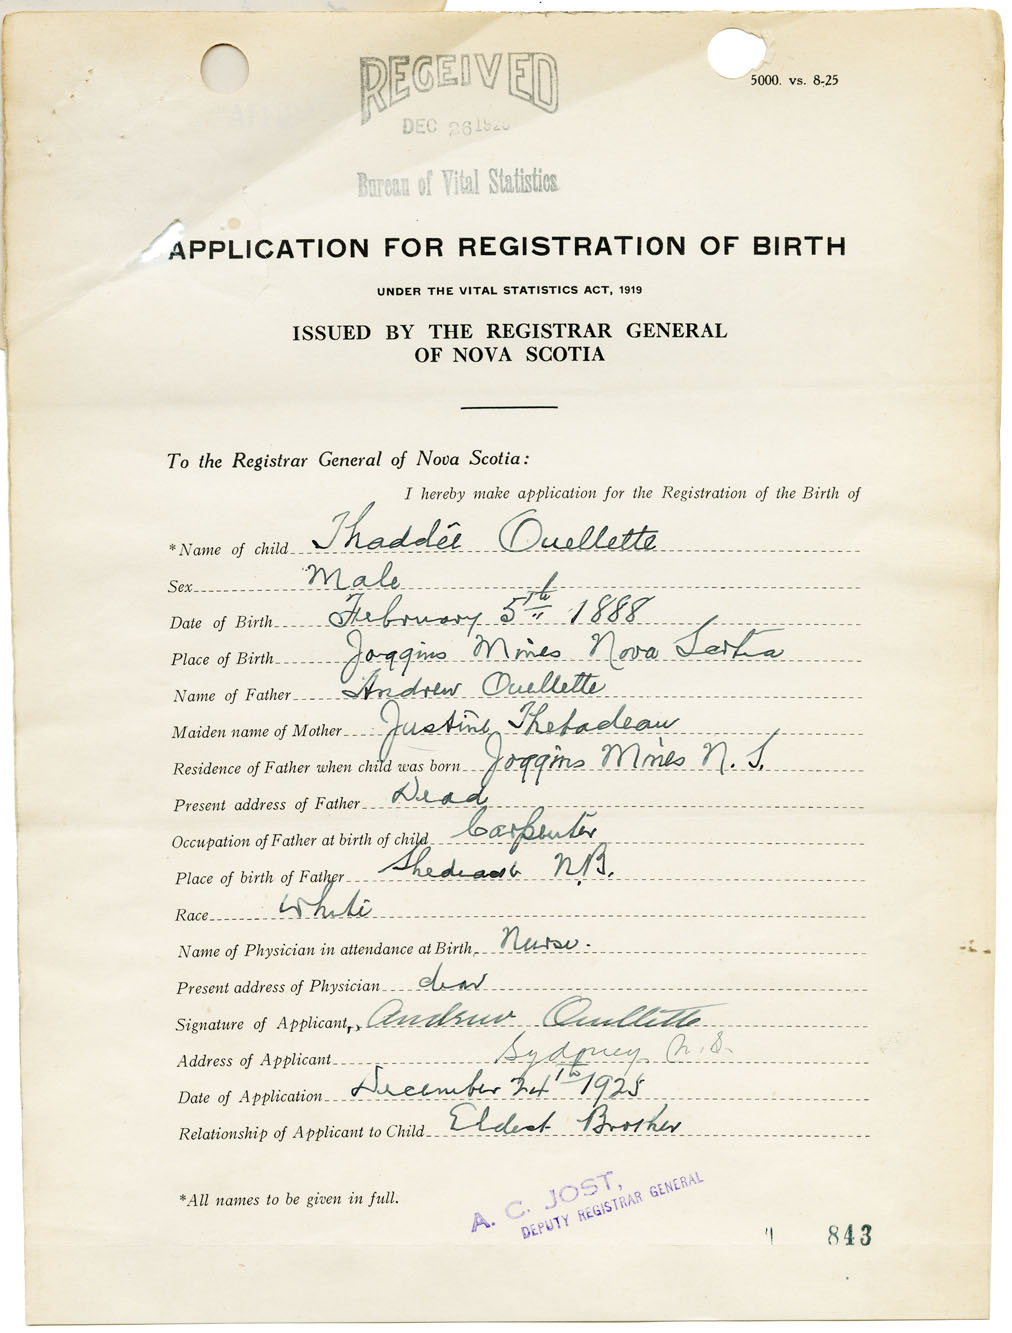 5000. vs. 8-25
RECEIVED
DEC 26 192
Bureau of Vital Statistics
APPLICATION FOR REGISTRATION OF BIRTH
UNDER THE VITAL STATISTICS ACT, 1919
ISSUED BY THE REGISTRAR GENERAL
OF NOVA SCOTIA
To the Registrar General of Nova Scotia:
I hereby make application for the Registration of the Birth of
*Name of child Thaddée Ouellette
Sex Male
Date of Birth February 5th 1888
Place of Birth Joggins Mines Nova Scotia
Name of Father Andrew Ouellette
Maiden name of Mother Justine Thebadeau
Residence of Father when child was born Joggins Mines N. S.
Present address of Father Dead
Occupation of Father at birth of child Carpenter
Place of birth of Father Shediac N.B.
Race White
Name of Physician in attendance at Birth, Nurse.
Present address of Physician dead
Signature of Applicant, Andrew Ouellette
Address of Applicant Sydney, N.S.
Date of Application December 24th 1925
Relationship of Applicant to Child Eldest Brother
*All names to be given in full.
A. C. JOST,
DEPUTY REGISTRAR GENERAL
843